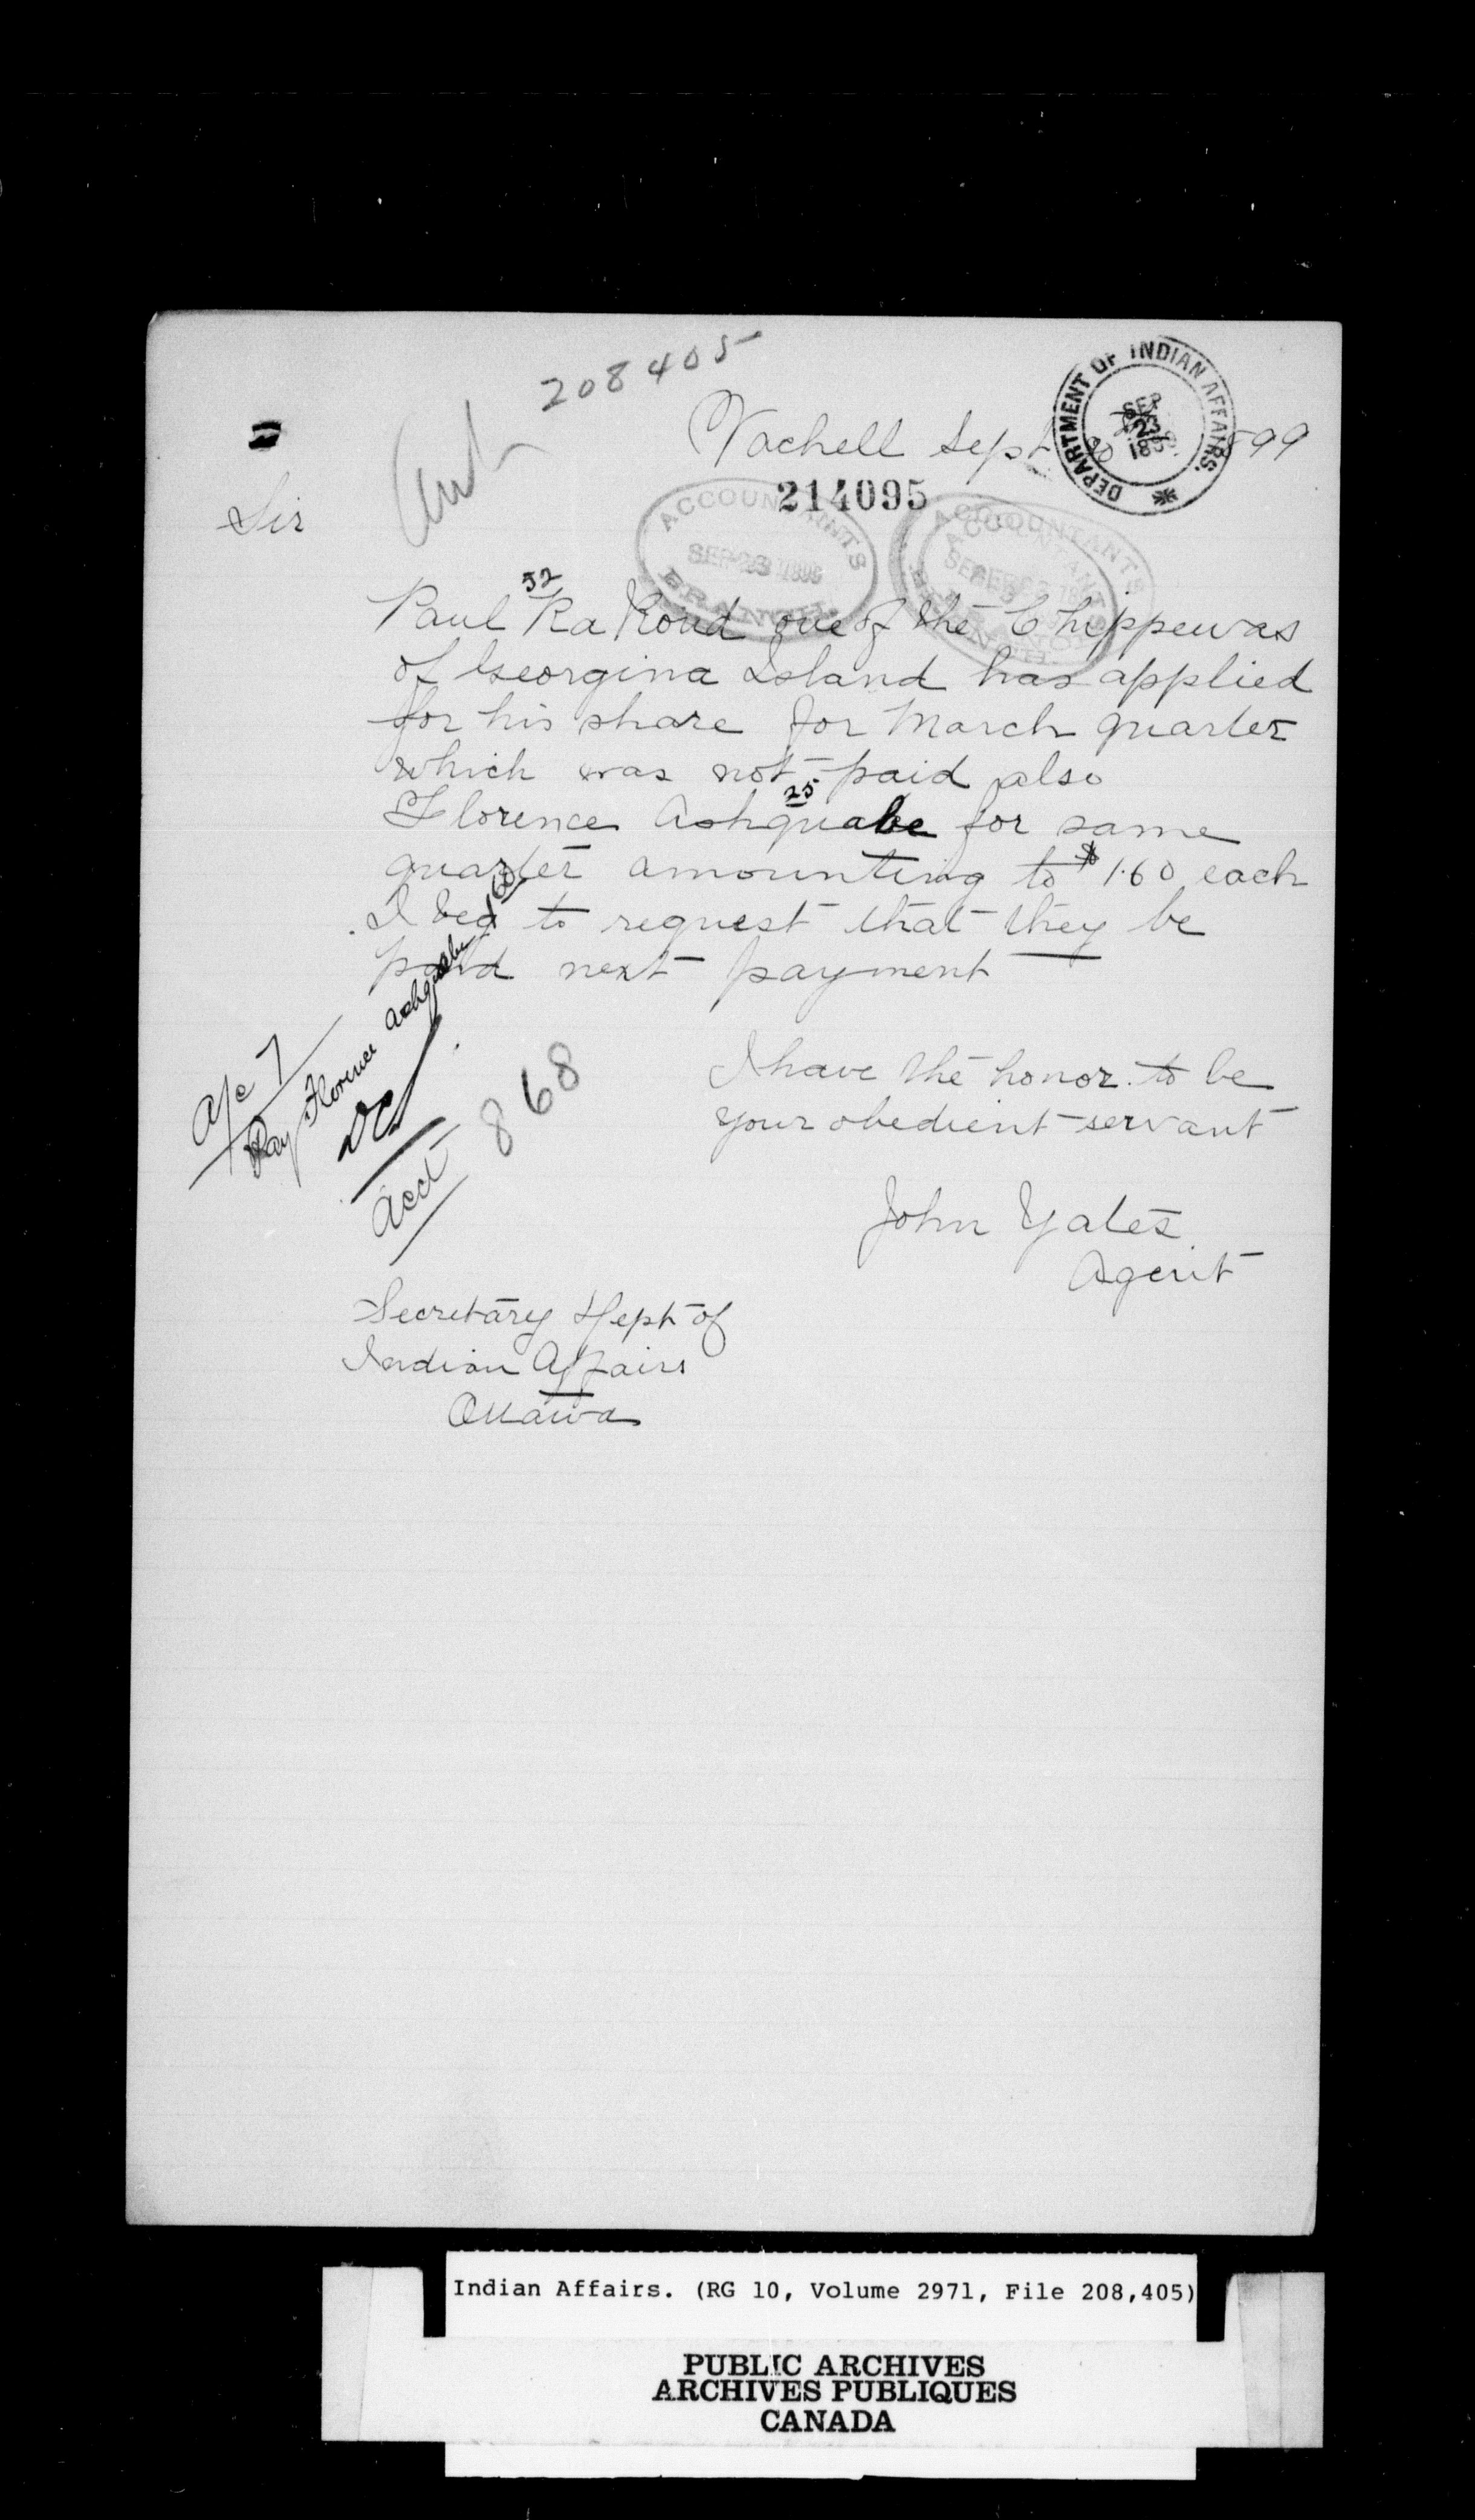 208405
Vachell Sept 20 1899
214095
DEPARTMENT OF INDIAN AFFAIRS.
SEP
23
ACCOUNTANTS
BRANCH
ACCOUNTANTS
BRANCH
Sir
52
Paul Ka Koud one of the Chippewas
of Georgina Island has applied
for his share for March quarter
which was not paid also
25
Florence Ashquabe for same
quarter amounting to $1.60 each
I beg to request that they be
paid next payment
A/c 7
Pay Florence Ashquabe 1.60
DCS
Acct 868
I have the honor to be
your obedient servant
John Yates
Agent
Secretary Dept of
Indian Affairs
Ottawa
Indian Affairs. (RG 10, Volume 2971, File 208,405)
PUBLIC ARCHIVES
ARCHIVES PUBLIQUES
CANADA